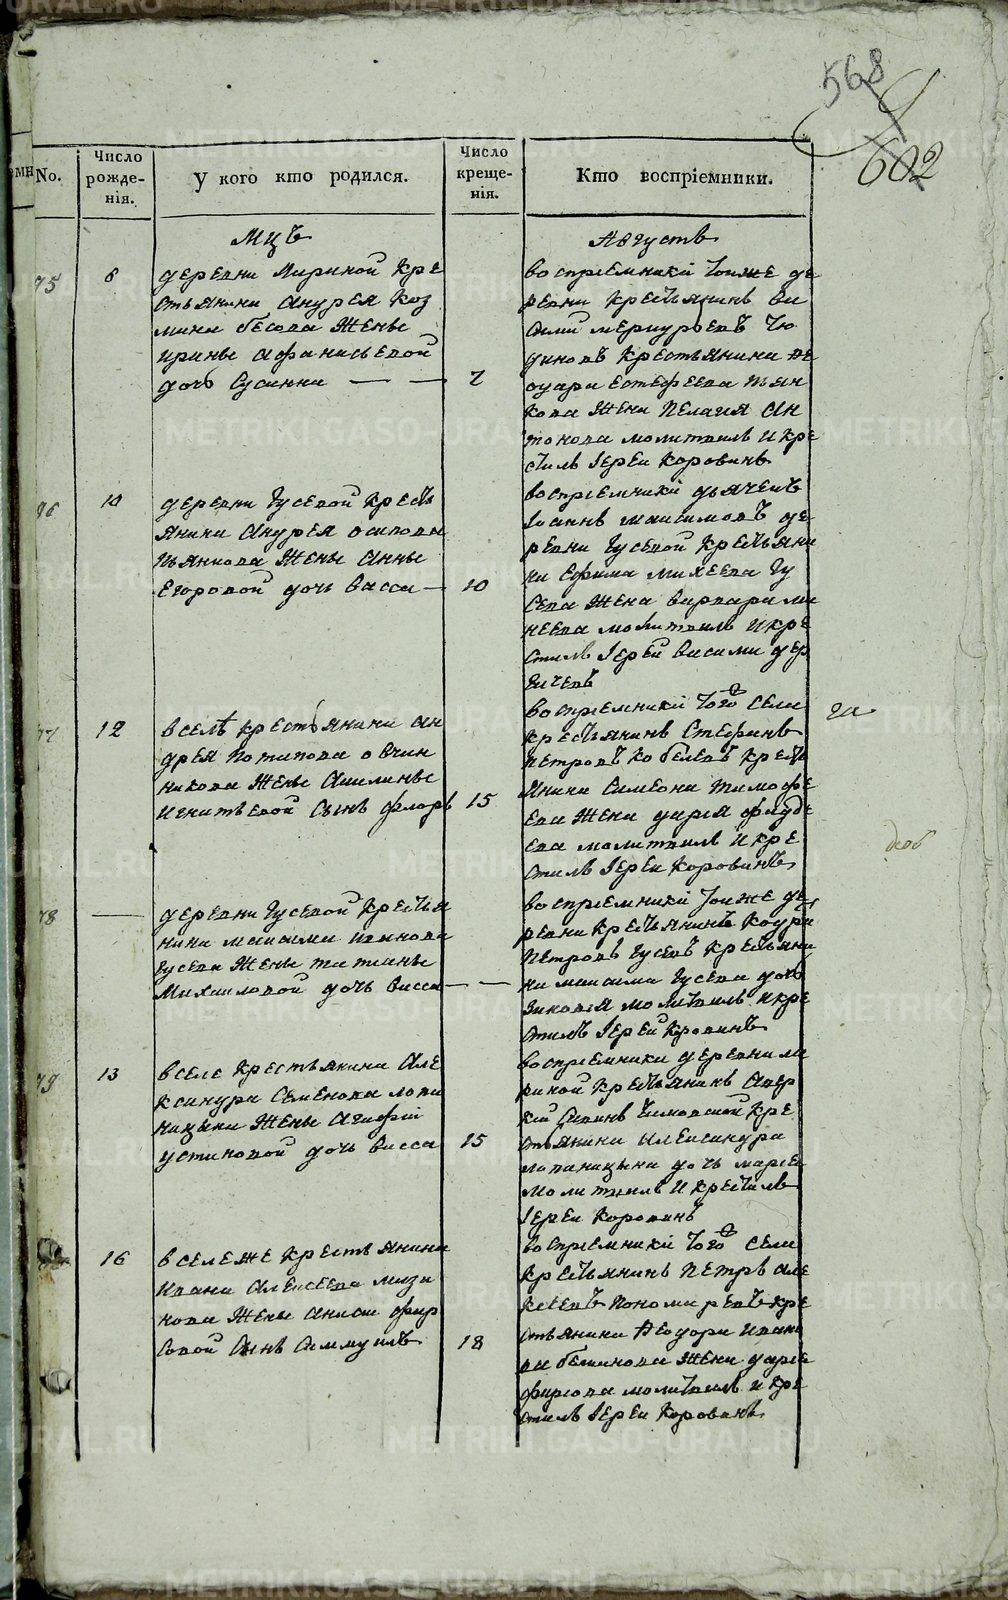 568
602
No.
Число рожде-нія.
У кого кто родился.
Число креще-нія.
Кто воспріемники.
Мцъ
Августъ
75
6
деревни Мириной кре
стьянина Андрея Коз
мина бесова жены
ирины афанасьевой
дочь Сусанна
7
воспріемники тоиже де
ревни крестьянинъ
диновъ крестьянина Ѳе
кова жена Пелагия Ан
тонова молитвилъ и кре
стилъ Іереи Коровинъ
76
10
деревни Гусевой кресть
янина Андрея осипова
пьянкова жены Анны
Егоровой дочь Васса
10
воспріемники дьячекъ
Іоаннъ максимовъ де
ревни Гусевой крестьяни
на Ефима михеева Гу
сева жена варвара ми
неева молитвилъ и кре
стилъ Іерей Васили дер
гачевъ
77
12
в селѣ крестьянина ан
дрея потапова овчин
никова жены Акилины
игнатьевой сынъ флоръ
15
воспріемники того села
крестьянинъ Стефанъ
петровъ кобелевъ кресть
янина Симеона тимофе
ева жена дарья
ева молитвилъ и кре
стилъ Іереи Коровинъ
78
деревни Гусевой крестья
нина максима иванова
гусева жены татьяны
Михаиловой дочь васса
воспріемники тоиже де
ревни крестьянинъ
петровъ гусевъ крестьяни
на максима гусева дочь
молитвилъ и кре
стилъ Іерей Коровинъ
79
13
в селе крестьянина Але
ксандра Семенова лопа
ницына жены Агафьи
устиновой дочь васса
15
воспріемники деревни ма
риной крестьянинъ
кре
стьянина Александра
лопаницына дочь марья
молитвилъ и крестилъ
Іереи Коровинъ
16
в селе же крестьянина
ивана Алексеева мизи
нова жены анисьи фир
совой сынъ Саммуилъ
18
воспріемники того села
крестьянинъ петръ але
ксеевъ пономаревъ кре
стьянина Ѳеодора ивано
ва жена дарья
фирсова молитвилъ и кре
стилъ Іереи Коровинъ
METRIKI.GASO-URAL.RU